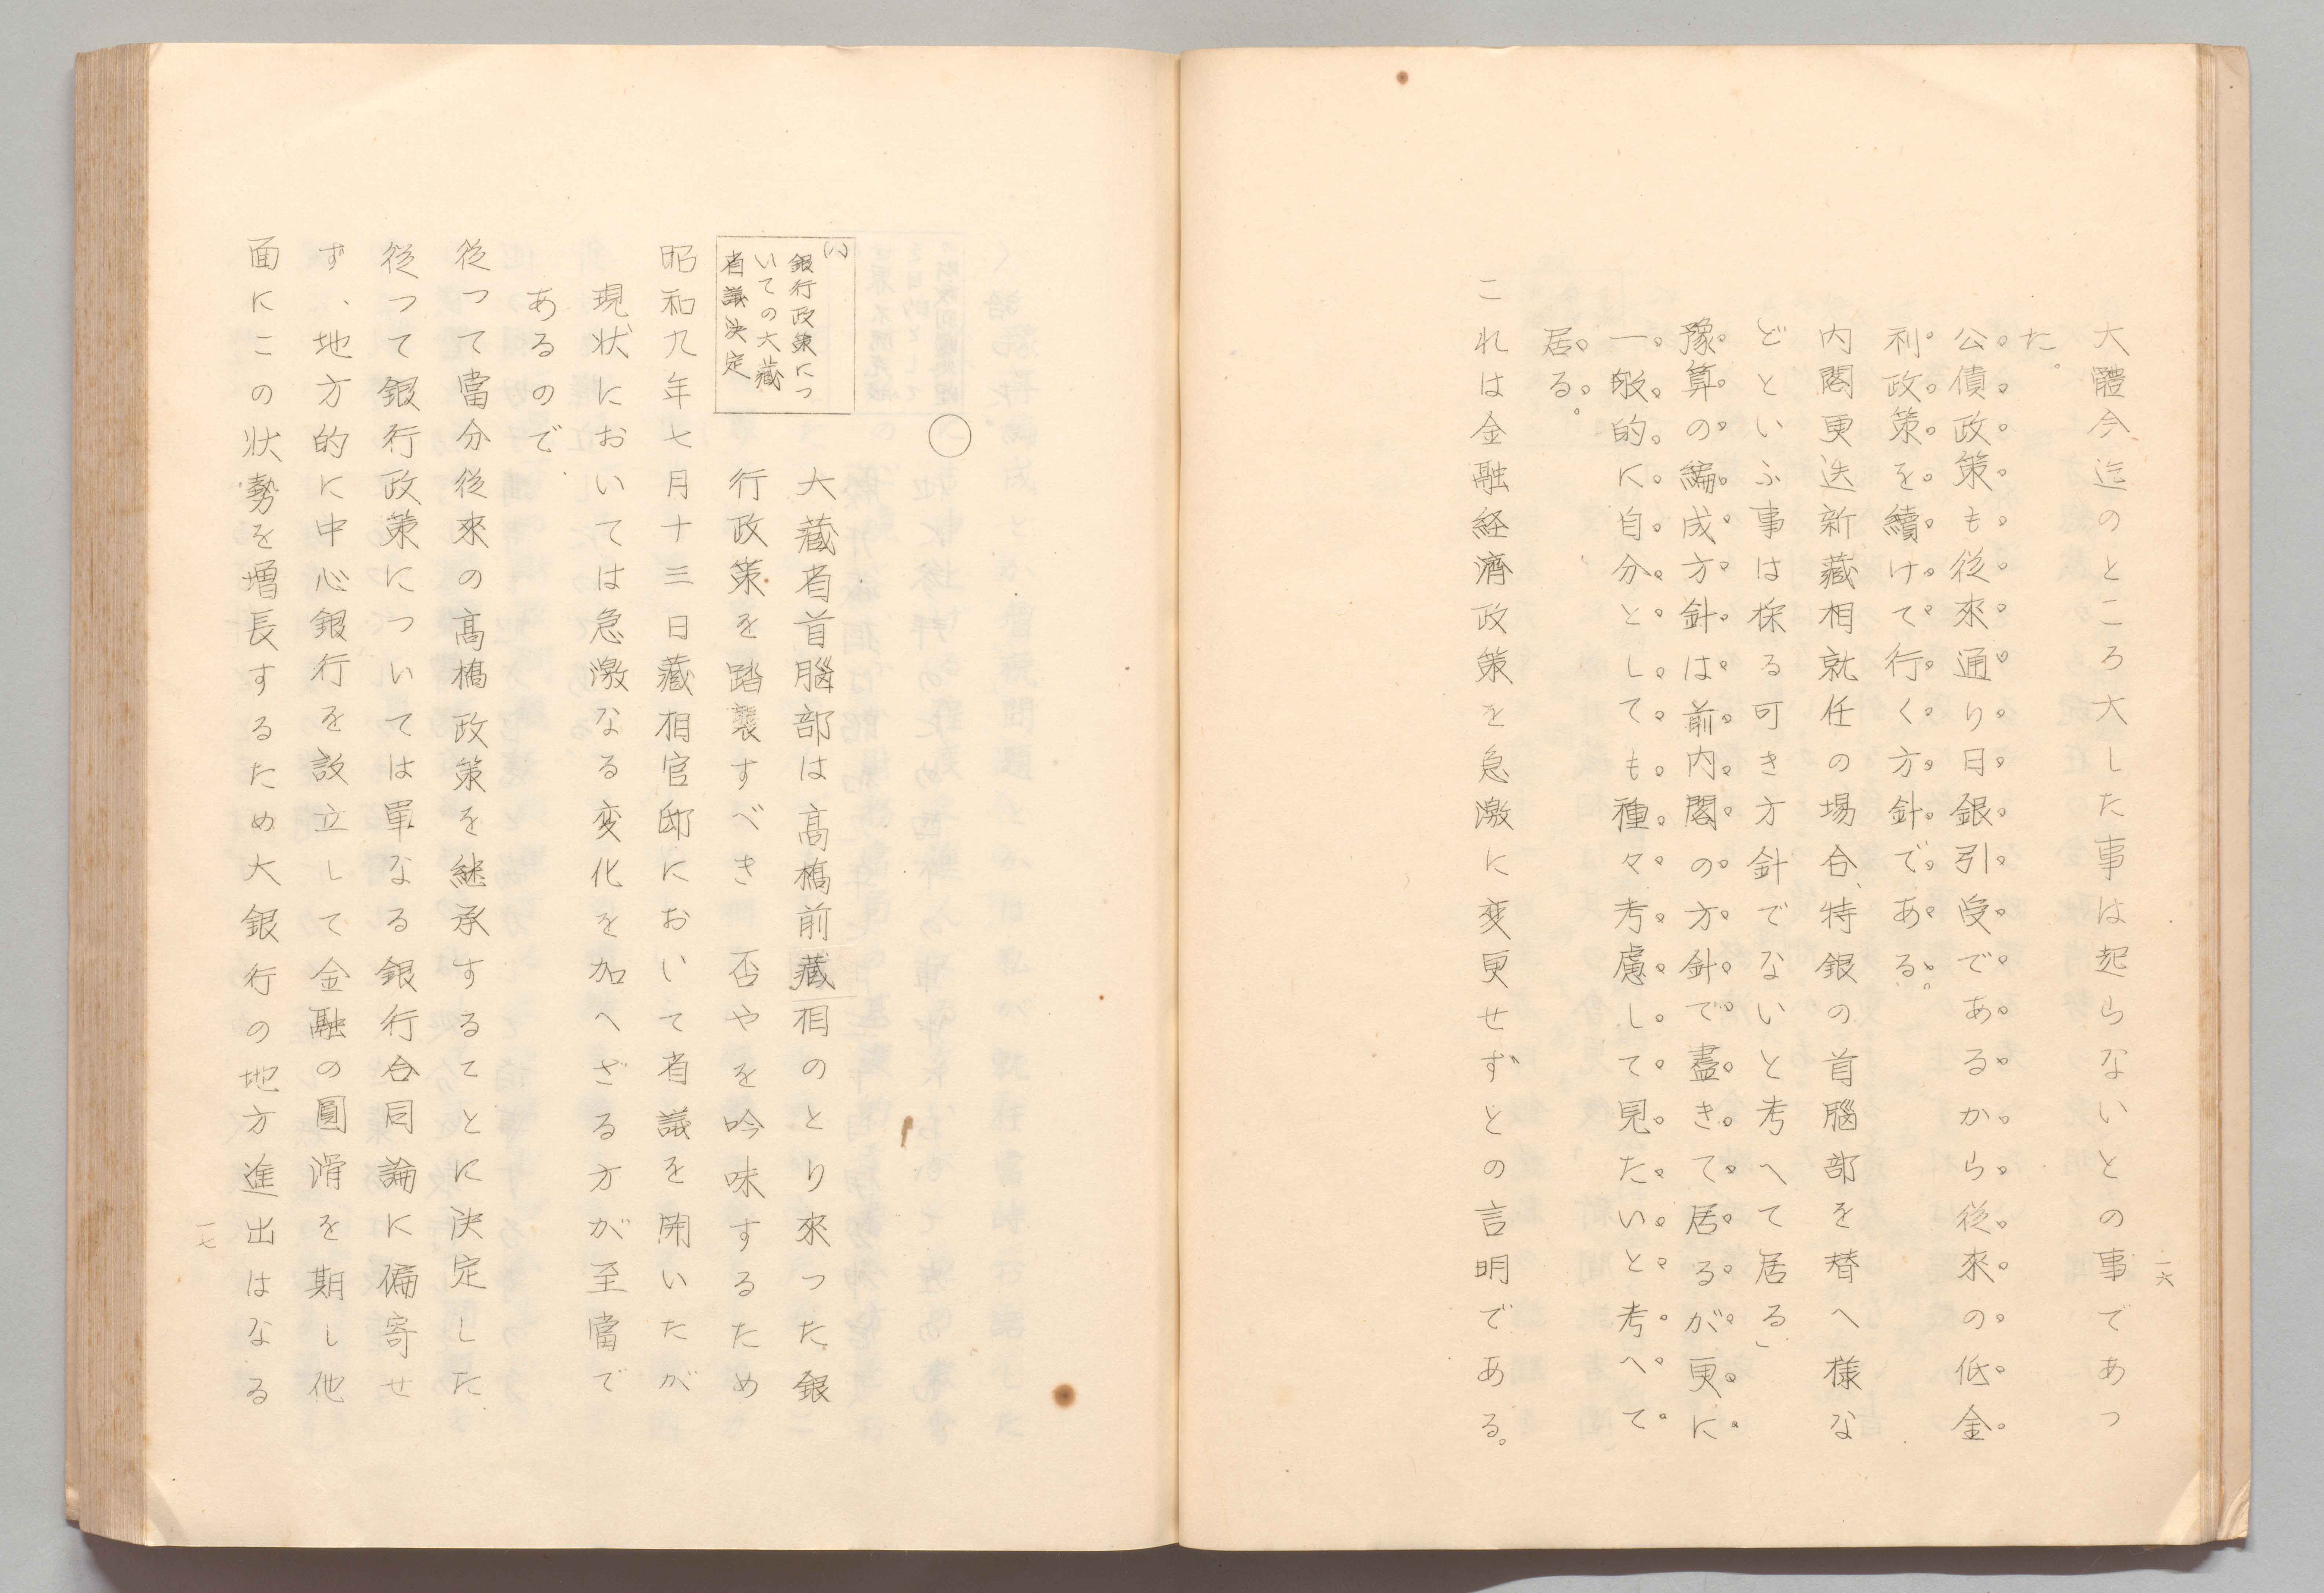 一六
大體今迄のところ大した事は起らないとの事であつ
た。
公債政策も從來通り日銀引受であるから從來の低金
利政策を續けて行く方針である。
内閣更迭新藏相就任の場合、特銀の首腦部を替へ樣な
どといふ事は採る可き方針でないと考へて居る」
豫算の編成方針は前内閣の方針で盡きて居るが更に
一般的に自分としても種々考慮して見たいと考へて
居る。
これは金融経濟政策を急激に変更せずとの言明である。
〇
(い)
銀行政策につ
いての大藏
省議決定
大藏省首腦部は高橋前藏相のとり來つた銀
行政策を踏襲すべき 否やを吟味するため
昭和九年七月十三日藏相官邸において省議を開いたが
現状においては急激なる変化を加へざる方が至當で
あるので
從つて當分從來の高橋政策を継承することに決定した
從つて銀行政策については單なる銀行合同論に偏寄せ
ず、地方的に中心銀行を設立して金融の圓滑を期し他
面にこの状勢を増長するため大銀行の地方進出はなる
一七